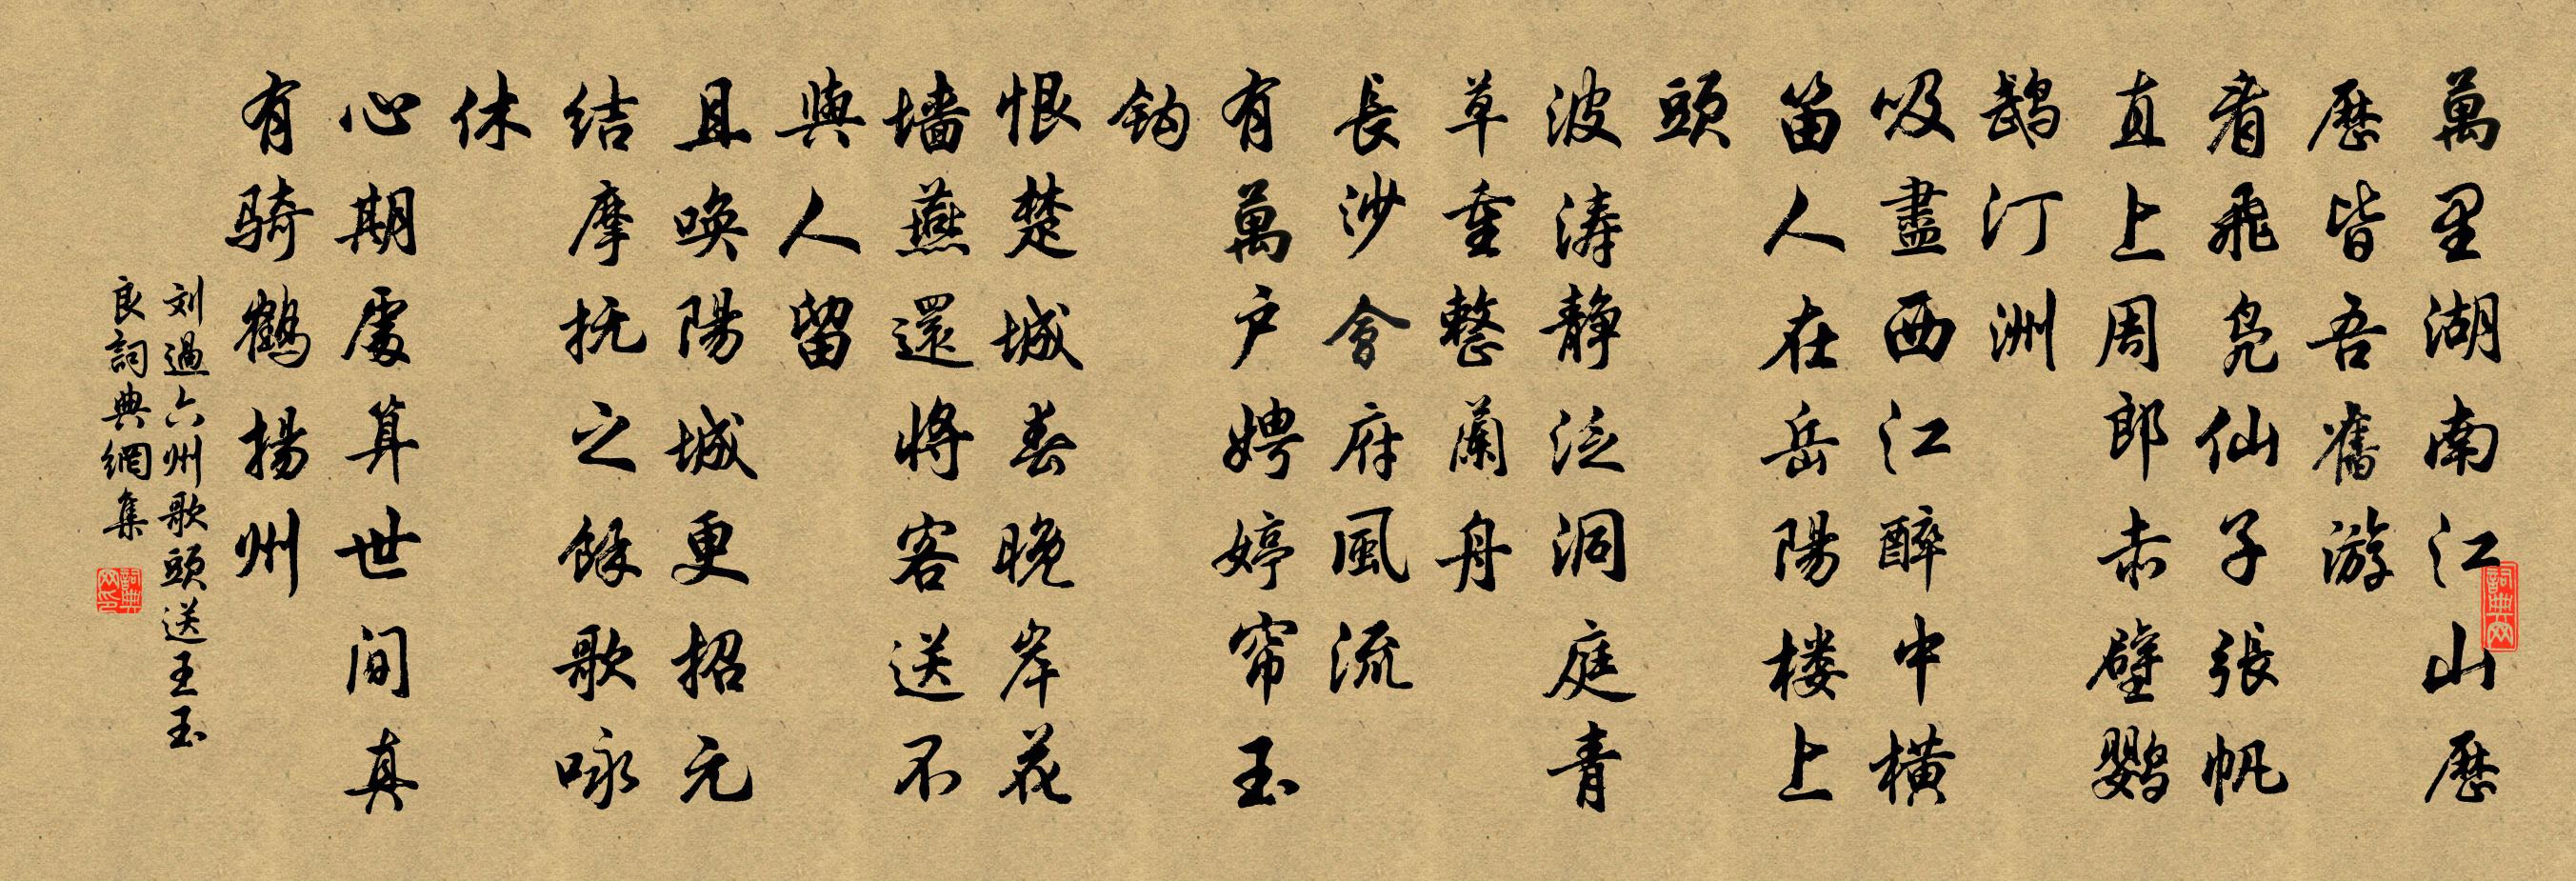 萬里湖南江山歷
歷皆吾舊游
看飛凫仙子張帆
直上周郎赤壁鸚
鵡汀洲
吸盡西江醉中橫
笛人在岳陽楼上
頭
波涛静泛洞庭青
草重整蘭舟
長沙會府風流
有萬户娉婷帘玉
鈎
恨楚城春晚岸花
墙燕還將客送不
與人留
且唤陽城更招元
结摩抚之餘歌咏
休
心期處算世间真
有骑鶴揚州
刘過六州歌頭送王玉
良詞典網集
詞典网
詞典网印